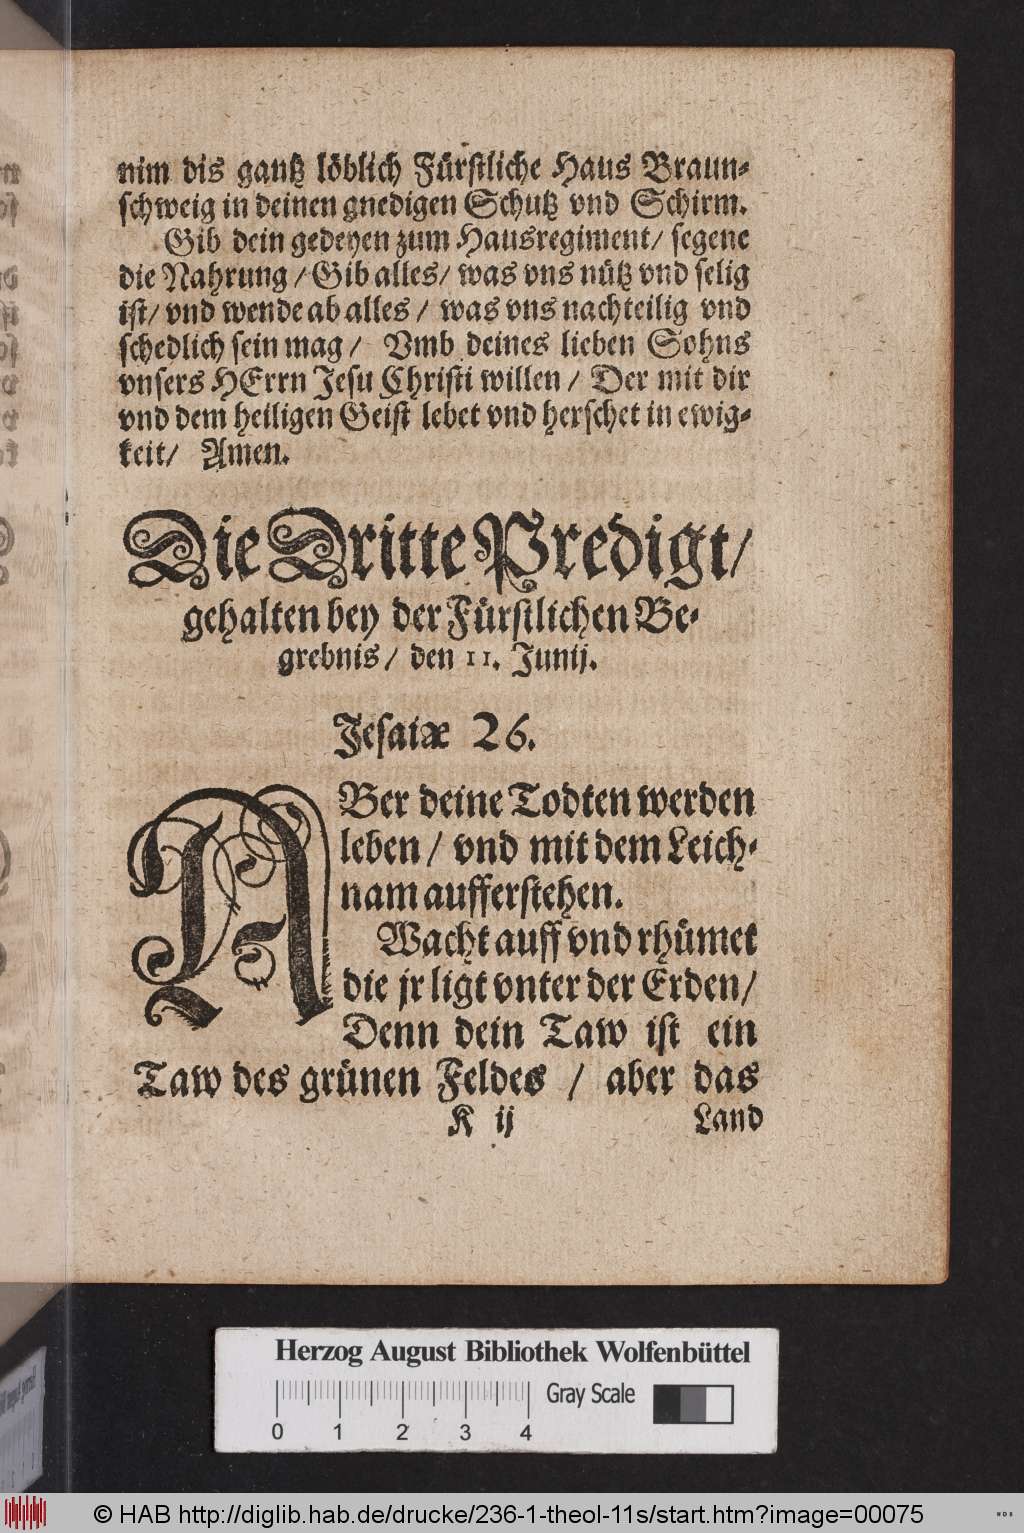 nim dis gantz löblich Fürstliche Haus Braun-
schweig in deinen gnedigen Schutz vnd Schirm.
Gib dein gedeyen zum Hausregiment/ segene
die Nahrung/ Gib alles/ was vns nütz vnd selig
ist/ vnd wende ab alles/ was vns nachteilig vnd
schedlich sein mag/ Vmb deines lieben Sohns
vnsers HErrn Jesu Christi willen/ Der mit dir
vnd dem heiligen Geist lebet vnd herschet in ewig-
keit/ Amen.
Die Dritte Predigt/
gehalten bey der Fürstlichen Be-
grebnis/ den 11. Junij.
Jesaiæ 26.
ABer deine Todten werden
leben/ vnd mit dem Leich-
nam aufferstehen.
Wacht auff vnd rhümet
die jr ligt vnter der Erden/
Denn dein Taw ist ein
Taw des grünen Feldes/ aber das
K ij Land
Herzog August Bibliothek Wolfenbüttel
Gray Scale
0 1 2 3 4
© HAB http://diglib.hab.de/drucke/236-1-theol-11s/start.htm?image=00075